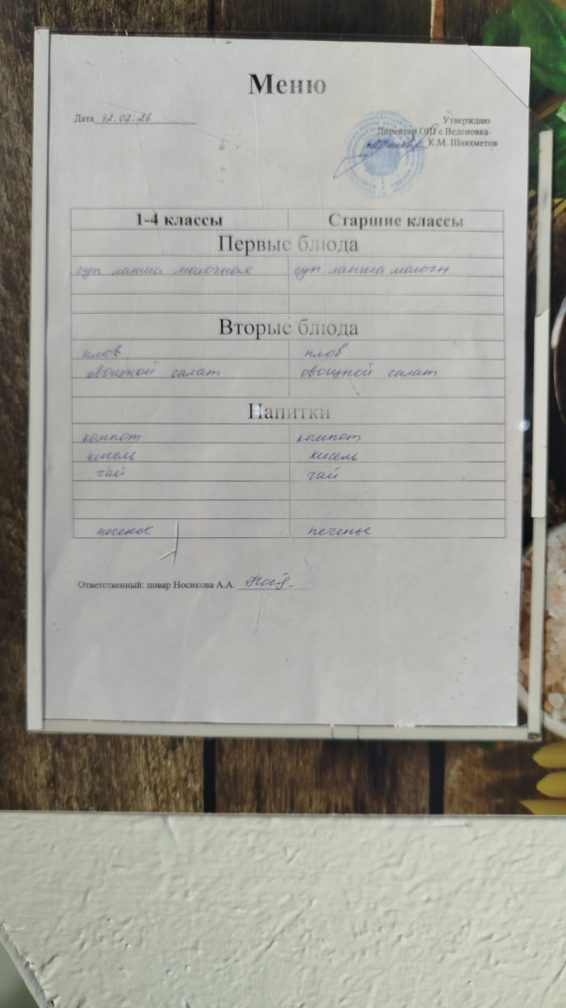 Меню
Дата 12.02.26
Утверждаю
Директор ОШ с Веденовка-
К.М. Шаяхметов
1-4 классы Старшие классы
Первые блюда
суп лапша молочная суп лапша молочн
Вторые блюда
плов плов
овощной салат овощной салат
Напитки
компот компот
кисель кисель
чай чай
печенье печенье
Ответственный: повар Носикова А.А.